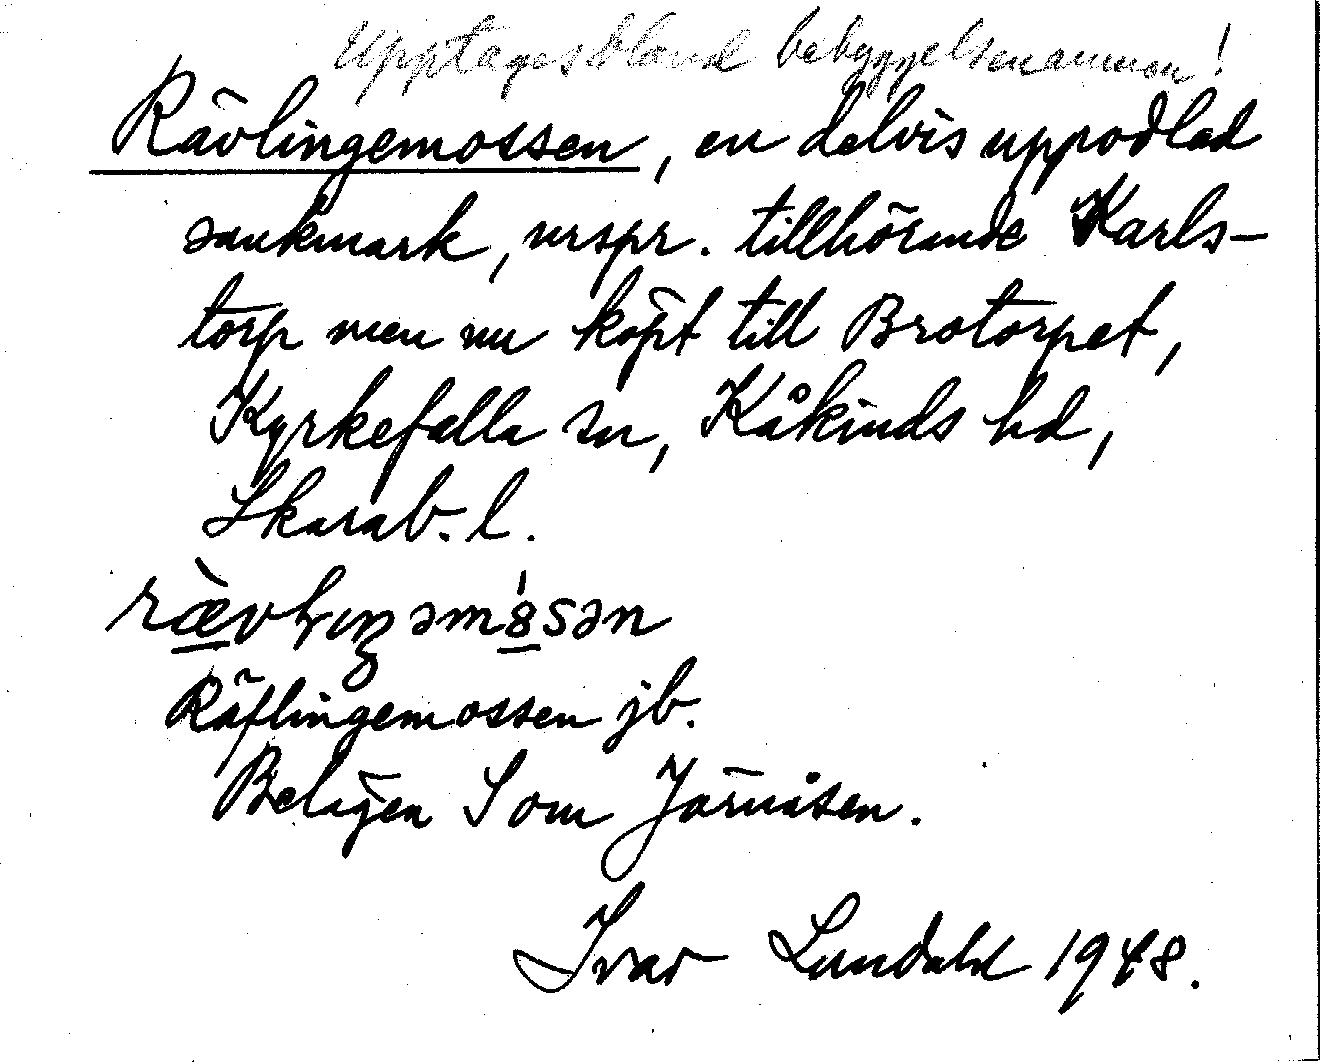 Upptages bland bebyggelsenamnen!
Rävlingemossen, en delvis uppodlad
sankmark, urspr. tillhörande Karls-
torp men nu köpt till Brotorpet,
Kyrkefalla sn, Kåkinds hd,
Skarab. l.
Räflingemossen jb.
Belägen S om Järnåsen.
Ivar Lundahl 1948.